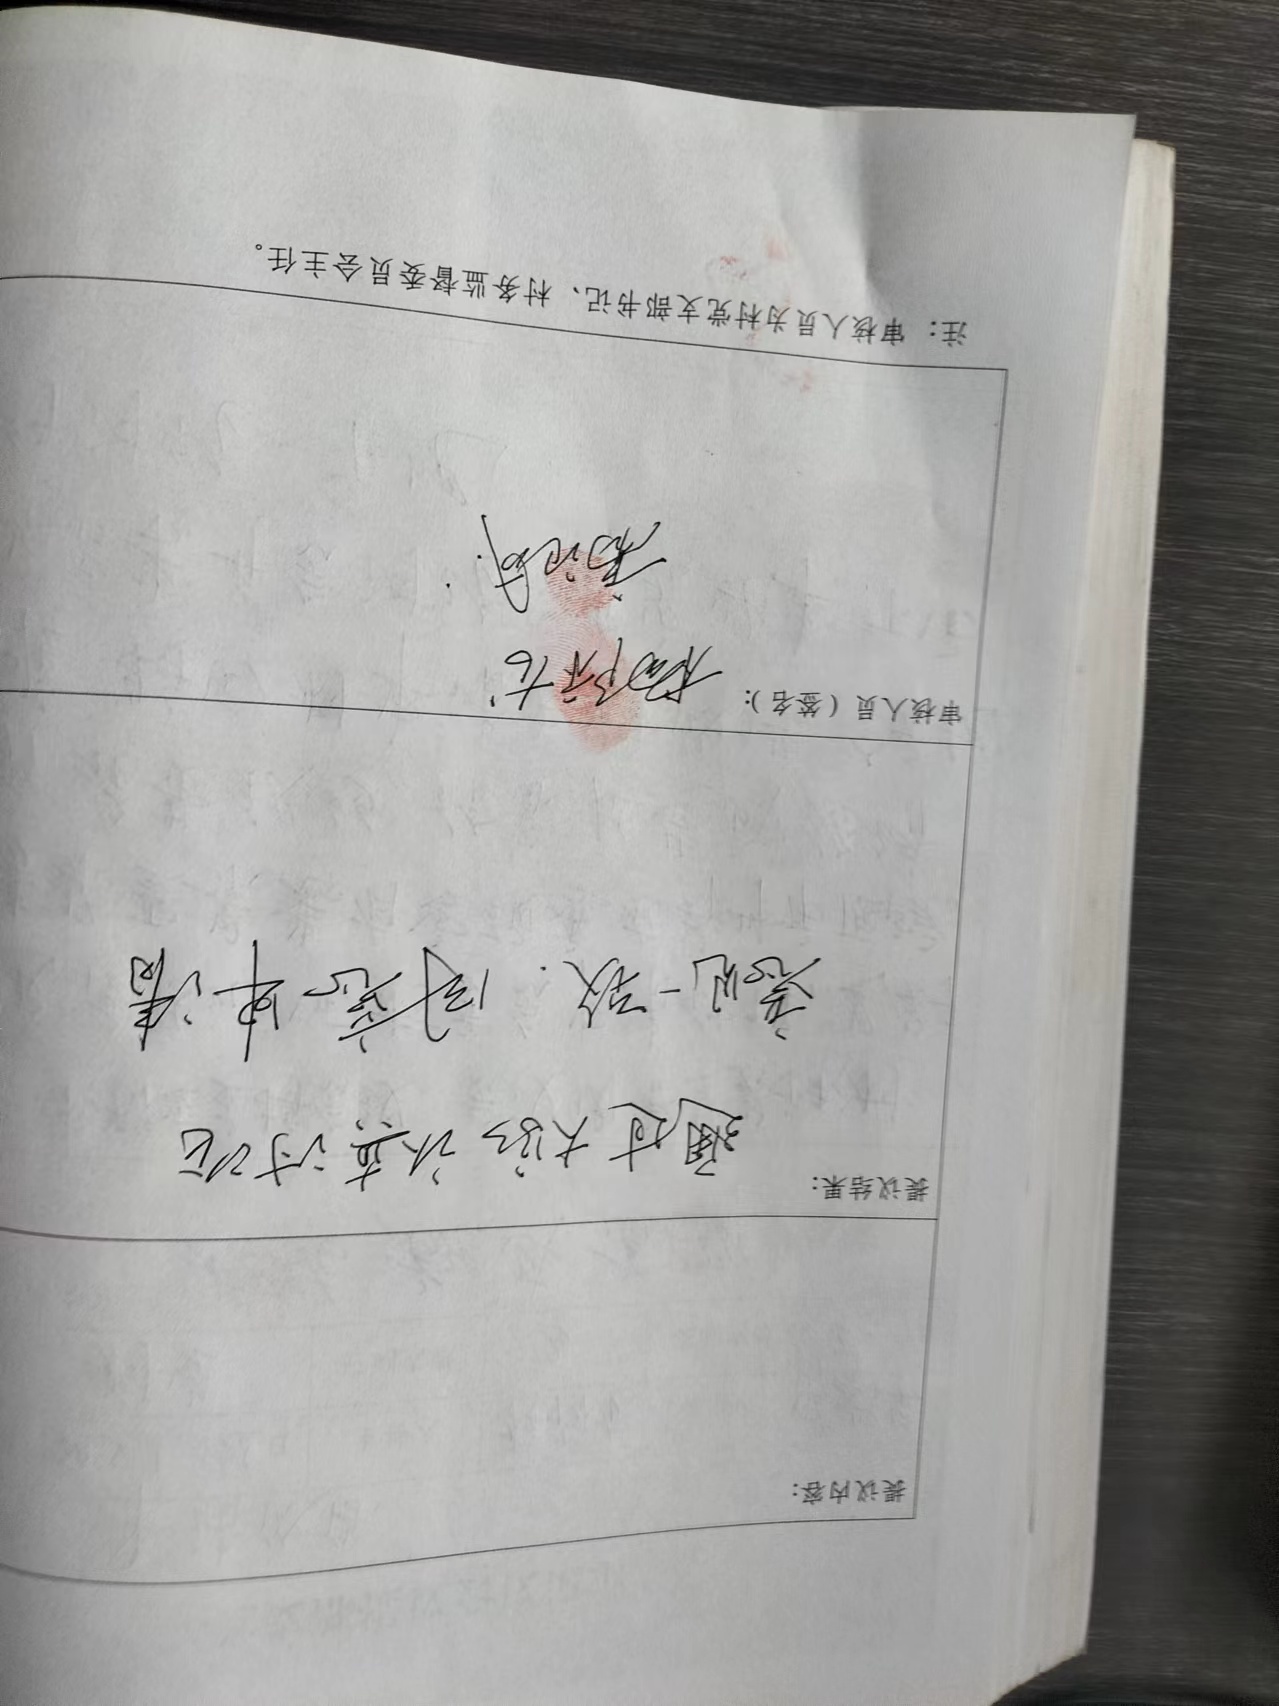 提议内容：
提议结果：
通过大家认真讨论
意见一致. 同意申请
审核人员（签名）：
注： 审核人员为村党支部书记、村务监督委员会主任。